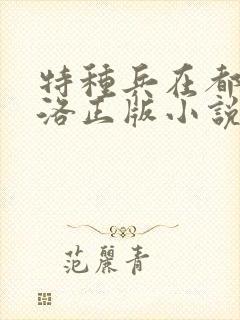 特種兵在都
洛正版小說
范麗青